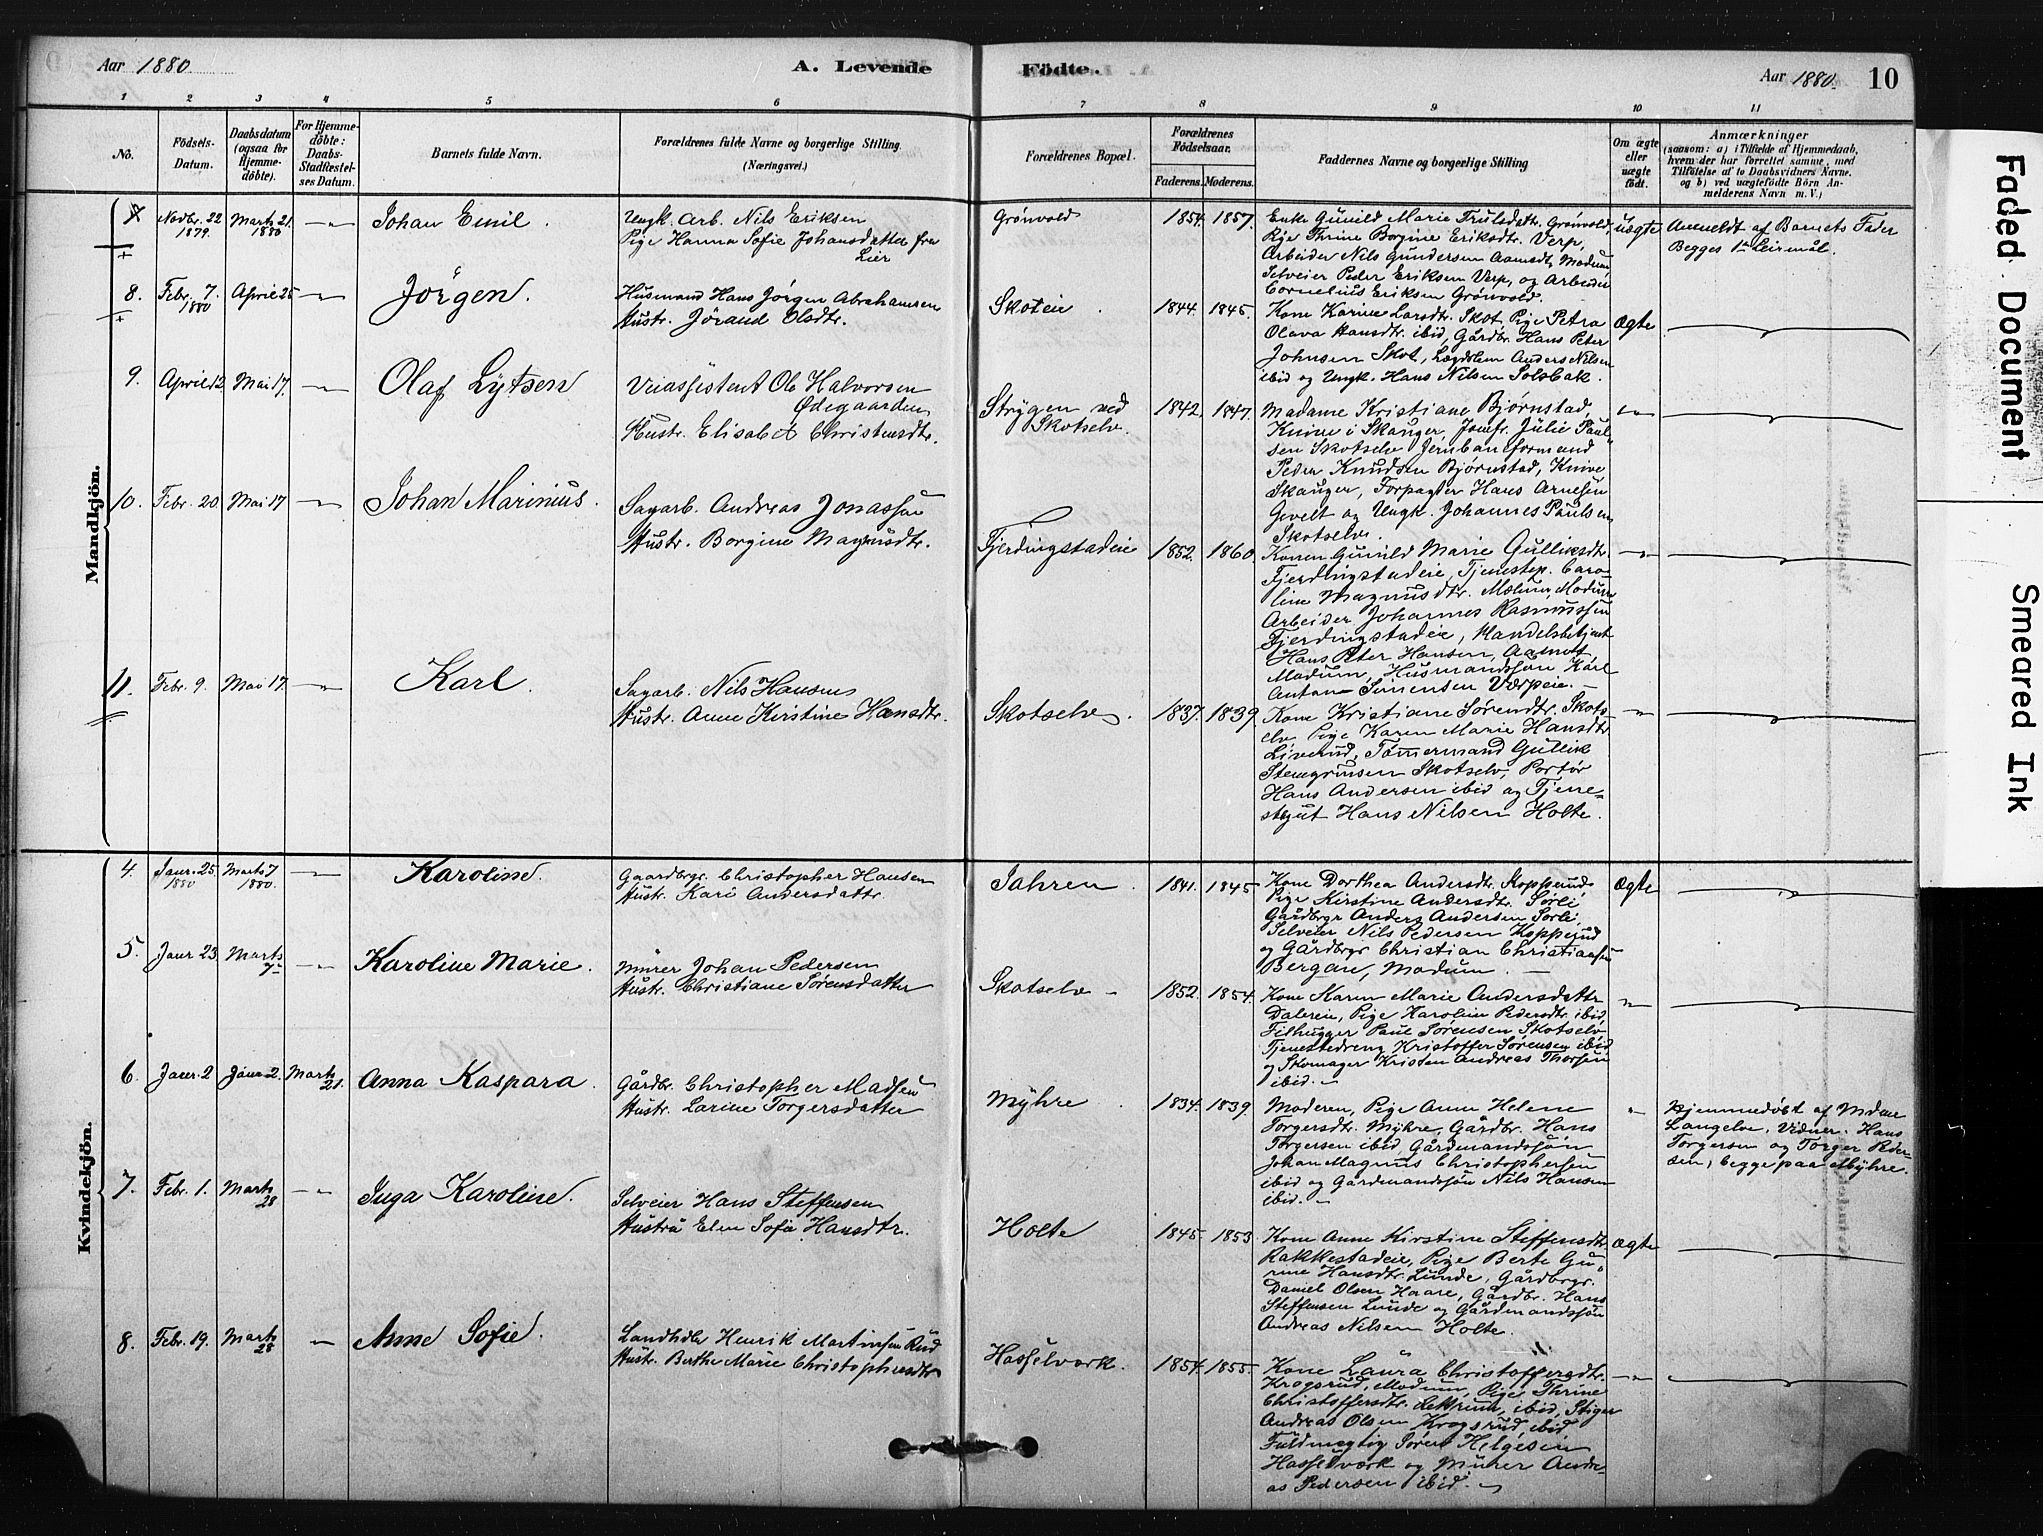 Aar 1880
A. Levende Födte.
Aar 1880. 10
1 2 3 4 5 6 7 8 9 10 11
No.
Födsels-Datum.
Daabsdatum (ogsaa for Hjemme-döbte).
For Hjemme-döbte: Daabs-Stadfæstel-ses Datum.
Barnets fulde Navn.
Forældrenes fulde Navne og borgerlige Stilling.
(Næringsvei.)
Forældrenes Bopæl.
Forældrenes Födselsaar.
Faderens. Moderens.
Faddernes Navne og borgerlige Stilling
Om ægte eller uægte födt.
Anmærkninger
(saasom: a) i Tilfælde af Hjemmedaab,
hvem der har forrettet samme, med
Tilföielse af to Daabsvidners Navne.
og b) ved uægtefödte Börn An-
melderens Navn m. V.)
Mandkjön.
7. Novbr. 22 1879. Marts 21. 1880 Johan Emil.
Ungk. Arb. Nils Eriksen
Pige Hanna Sofie Johansdatter fra
Lier
Grønvold 1854. 1857.
Enke Gunild Marie Trulsdatr. Grønvold,
Pige Thrine Borgine Eriksdtr. Verp,
Arbeider Nils Gundersen Aamodt, Modum
Selveier Peder Eriksen Verp, og Arbeider
Cornelius Eriksen Grønvold.
uægte
Anmeldt af Barnets Fader
Begges 1ste Leiermål.
8. Febr. 7. 1880 April 25 Jörgen.
Husmand Hans Jörgen Abrahamsen
Hustr. Jörand Olsdtr.
Skoteie 1844. 1845.
Kone Karine Larsdtr. Skot, Pige Petra
Olava Hansdtr. ibid, Gårdbr. Hans Peter
Johnsen Skot, Lægdslem Anders Nilsen
ibid og Ungk. Hans Nilsen Solsbak.
Ægte
9. April 12. Mai 17. Olaf Lytsen
Veiassistent Ole Halvorsen
Ødegaarden
Hustr. Elisabet Christensdtr.
Strygen ved
Skotselv. 1842. 1847.
Madame Kristiane Bjørnstad,
Knive i Skauger, Jomfr. Julie Paul-
sen Skotselv Jernbaneformand
Peder Knudsen Bjørnstad, Knive
Skauger, Forpagter Hans Arnesen
Gevelt og Ungk. Johannes Paulsen
Skotselv.
10. Febr. 20. Mai 17 Johan Marinius.
Sagarb. Andreas Jonassen
Hustr. Borgine Magnusdtr.
Fjerdingstadeie 1852. 1860.
Konen Gunild Marie Gulliksdtr.
Fjerdingstadeie, Tjenestep. Caro-
line Magnusdtr. Mælum, Modum
Arbeider Johannes Rasmussen
Fjerdingstadeie, Handelsbetjent
Hans Peter Hansen, Aamot,
Modum, Husmandssøn Karl
Anton Simensen Værpeie.
11. Febr. 9. Mai 17. Karl.
Sagarb. Nils Hansen
Hustr. Anne Kirstine Hansdtr.
Skotselv. 1837. 1839.
Kone Kristiane Sørensdtr. Skots-
elv Pige Karen Marie Hansdtr.
Liverud, Tømmermand Gullik
Steingrimsen Skotselv, Portør
Hans Andersen ibid og Tjene-
stegut Hans Nilsen Holte.
Kvindekjön.
4. Janr. 25. 1880 Marts 7 1880. Karoline.
Gaardbgr. Christopher Hansen
Hustr. Kari Andersdattr.
Jahren. 1841. 1845
Kone Dorthea Andersdtr. Kopperud
Pige Kirstine Andersdtr. Sørli
Gårdbgr Anders Andersen Sørli,
Selveier Nils Pedersen Kopperud
og Gårdbgr Christian Christiansen
Bergan, Modum.
Ægte
5. Janr 23. Marts 7 Karoline Marie.
Murer Johan Pedersen
Hustr. Christiane Sørensdatter
Skotselv 1852. 1854.
Kone Karen Marie Andersdattr
Dalereie, Pige Karoline Pedersdtr. ibid,
Filhugger Paul Sørensen Skotselv
Tjenestedreng Kristoffer Sørensen ibid
og Skomager Kristen Andreas Thorsen
ibid.
6. Janr 2 Janr 2. Marts 21. Anna Kaspara.
Gårdbr. Christopher Madsen
Hustr. Larine Torgersdatter
Myhre 1834. 1839.
Moderen, Pige Anne Helene
Torgersdtr. Myhre, Gårdbr. Hans
Torgersen ibid, Gårdmandssøn
Johan Magnus Christophersen
ibid og Gårdmandssøn Nils Hansen
ibid.
Hjemmedøbt af Mdme
Langelve. Vidner: Hans
Torgersen og Torger Peder-
sen, begge paa Myhre.
7. Febr. 1. Marts 28 Inga Karoline.
Selveier Hans Steffensen
Hustru Elen Sofie Hansdtr.
Holte 1845. 1853
Kone Anne Kirstine Steffensdtr.
Rakkestadeie, Pige Berte Gu-
rine Hansdtr. Lunde, Gårdbgr.
Daniel Olsen Haare, Gårdbr. Hans
Steffensen Lunde og Gårdmandssøn
Andreas Nilsen Holte.
Ægte
8. Febr. 19. Marts 28 Anne Sofie.
Landhdlr Henrik Martinsen Rud
Hustr. Berthe Marie Christophersdtr
Hasselværk. 1854. 1855.
Kone Laura Christoffersdtr.
Krogsrud, Modum, Pige Thrine
Christoffersdtr. ibid, Stiger
Andreas Olsen Krogsrud, ibid
Fuldmægtig Søren Helgesen
Hasselværk og Murer Andre-
as Pedersen ibid.
Faded Document
Smeared Ink